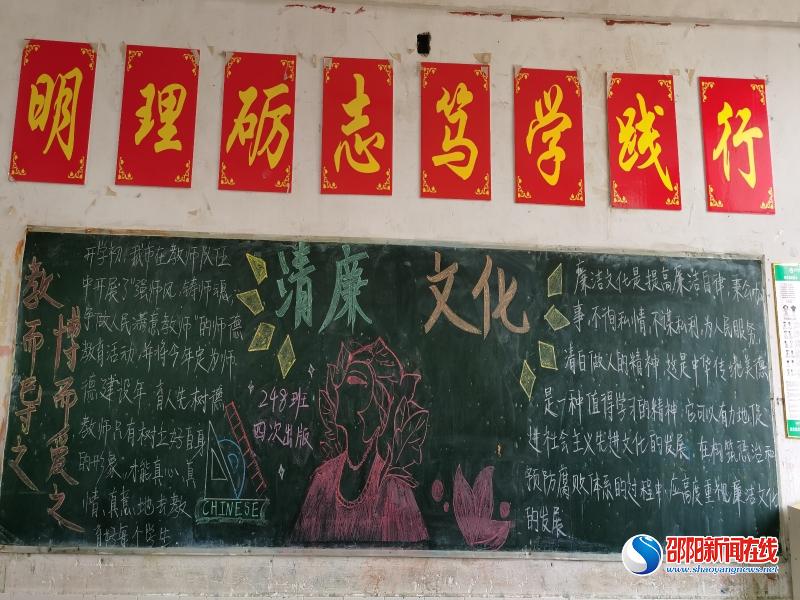 明理砺志笃学践行
教而导之
博而爱之
开学初,我市在教师队伍
中开展了"强师风,铸师魂,
争做人民满意教师"的师德
教育活动,并将今年定为师
德建设年,育人先树德,
教师只有树立好自身
的形象,才能真心,真
情,真意,地去教
每个学生
清廉 文化
248班
四次出版
CHINESE
廉洁文化是提高廉洁自律,秉公办
事,不徇私情,不谋私利,为人民服务,
清白做人的精神,这是中华传统美德
是一种值得学习的精神,它可以有力地促
进社会主义先进文化的发展,在构筑惩治和
预防腐败体系的过程中,应高度重视廉洁文化
的发展
邵阳新闻在线
www.shaoyangnews.net